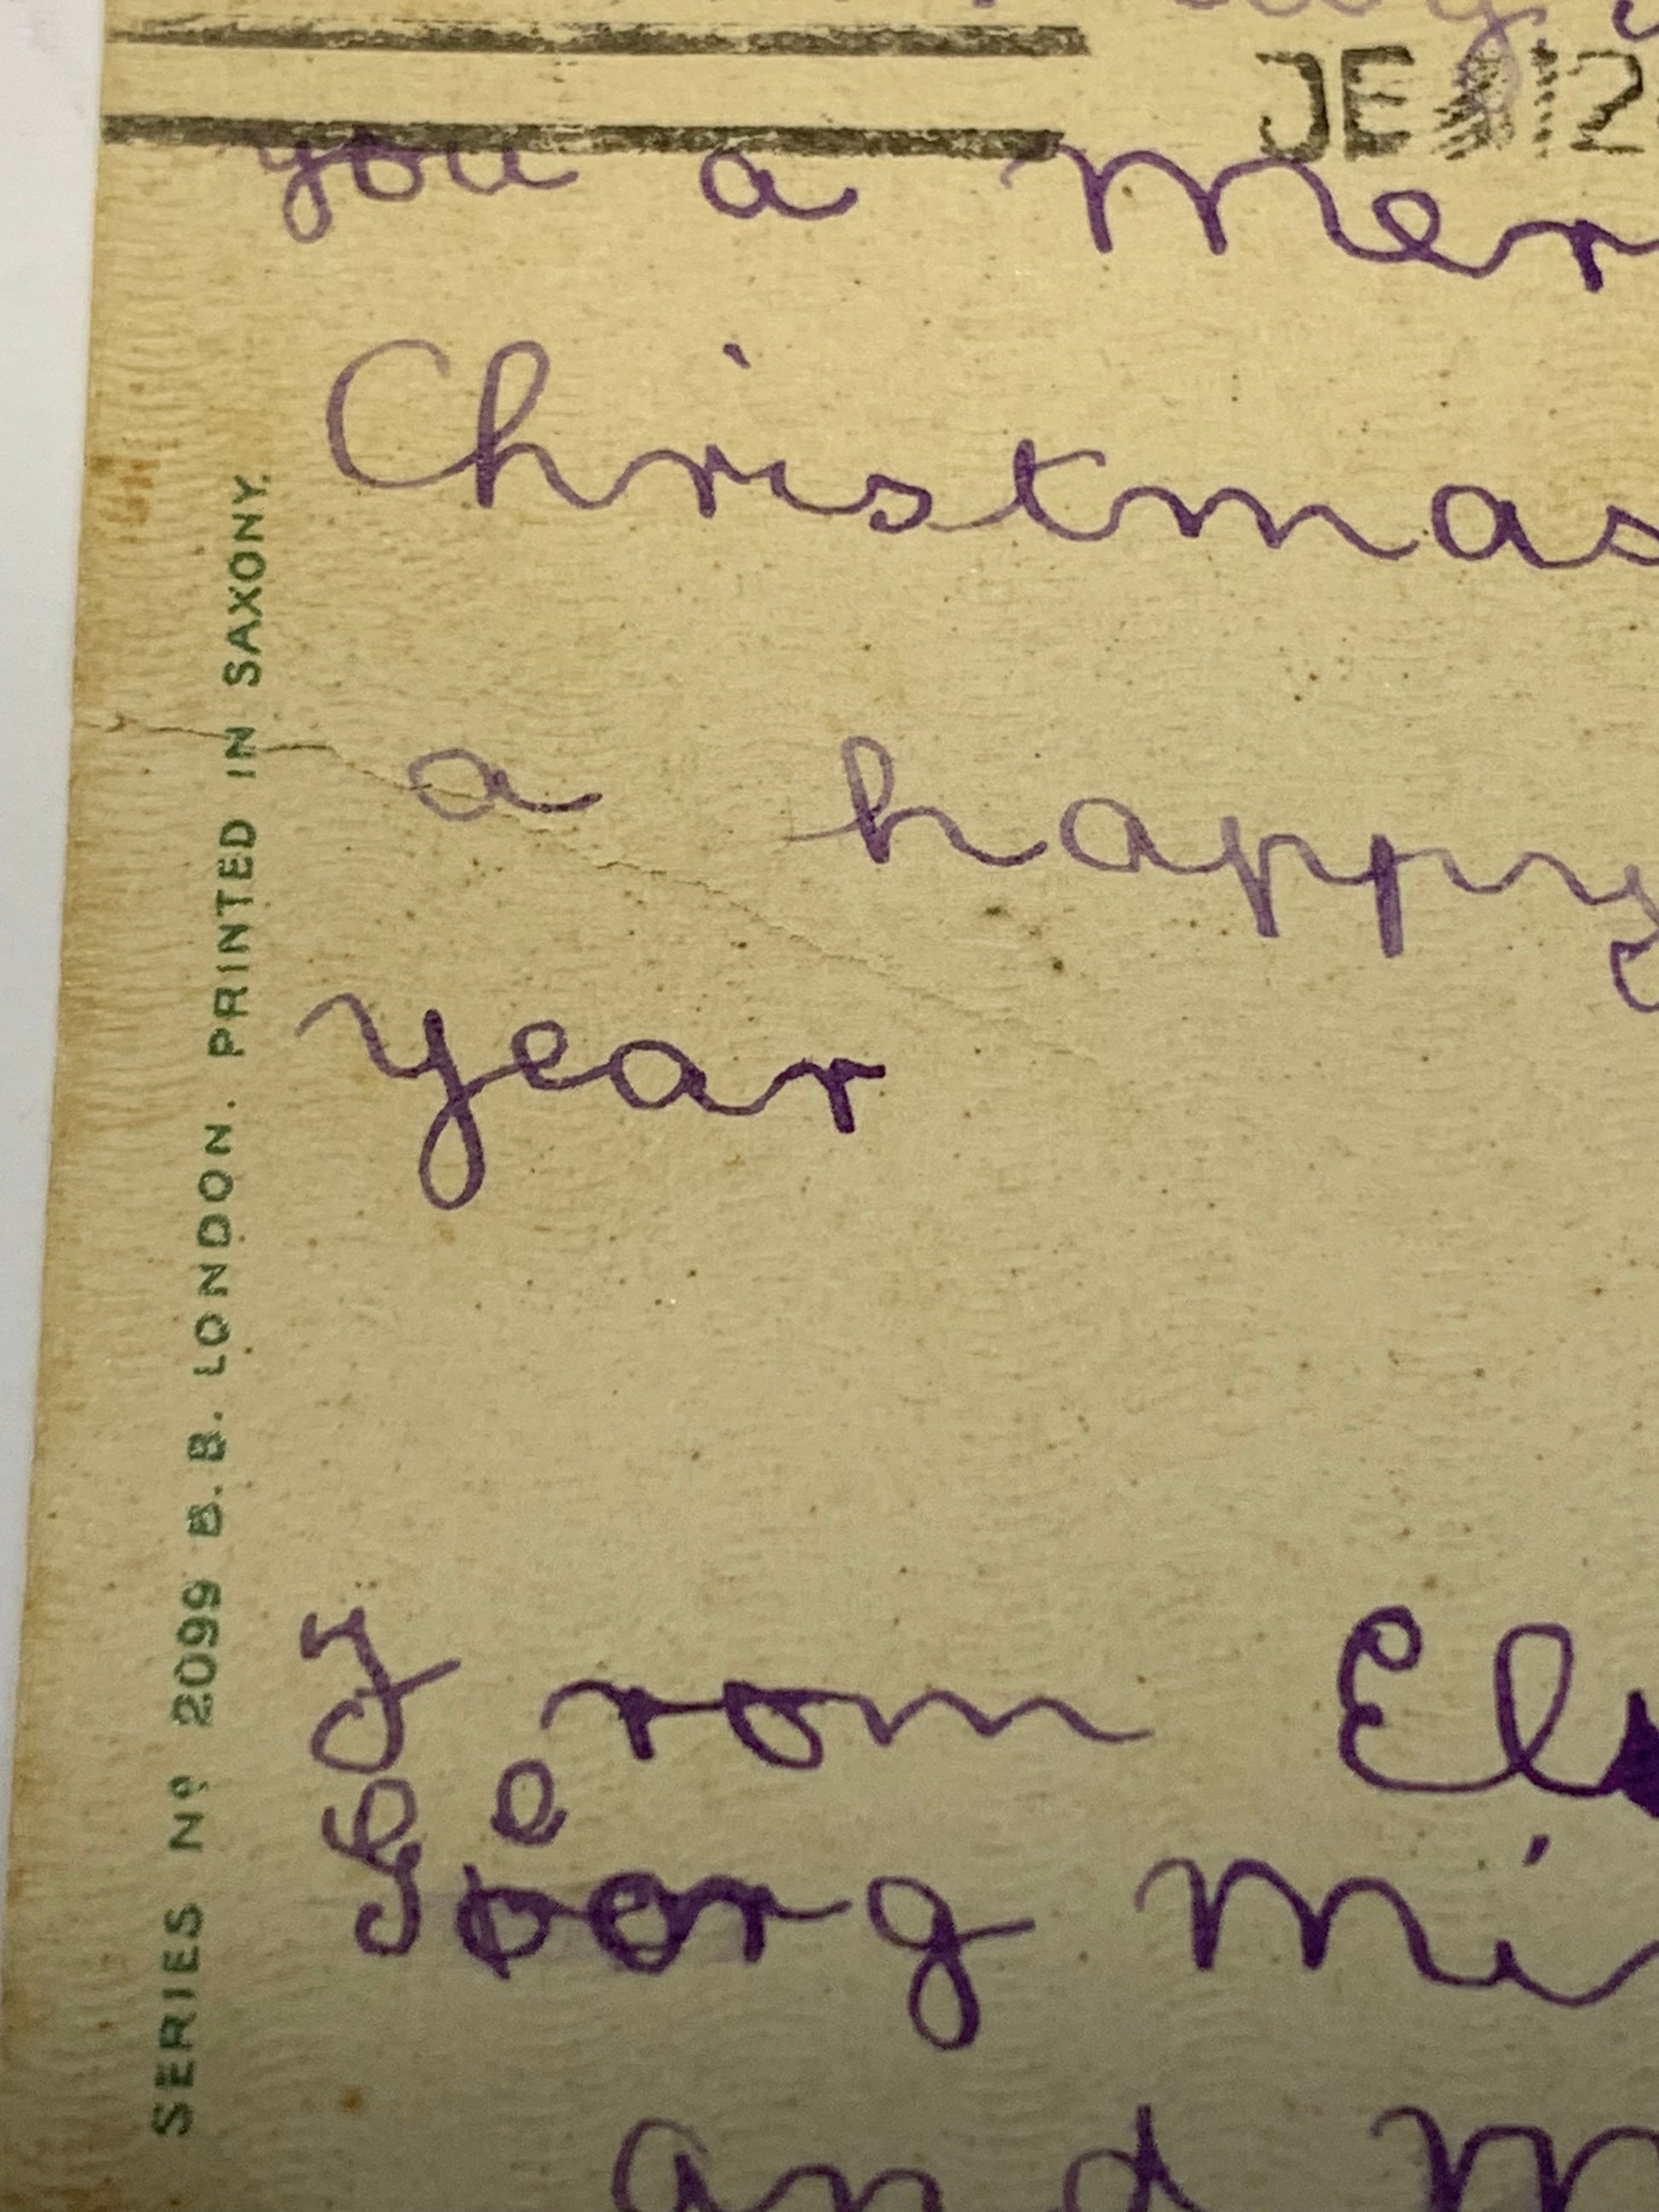 JE 12
you a mer
Christmas
a happy
year
From El
Georg mi
and m
SERIES Nº 2099 B.B. LONDON. PRINTED IN SAXONY.